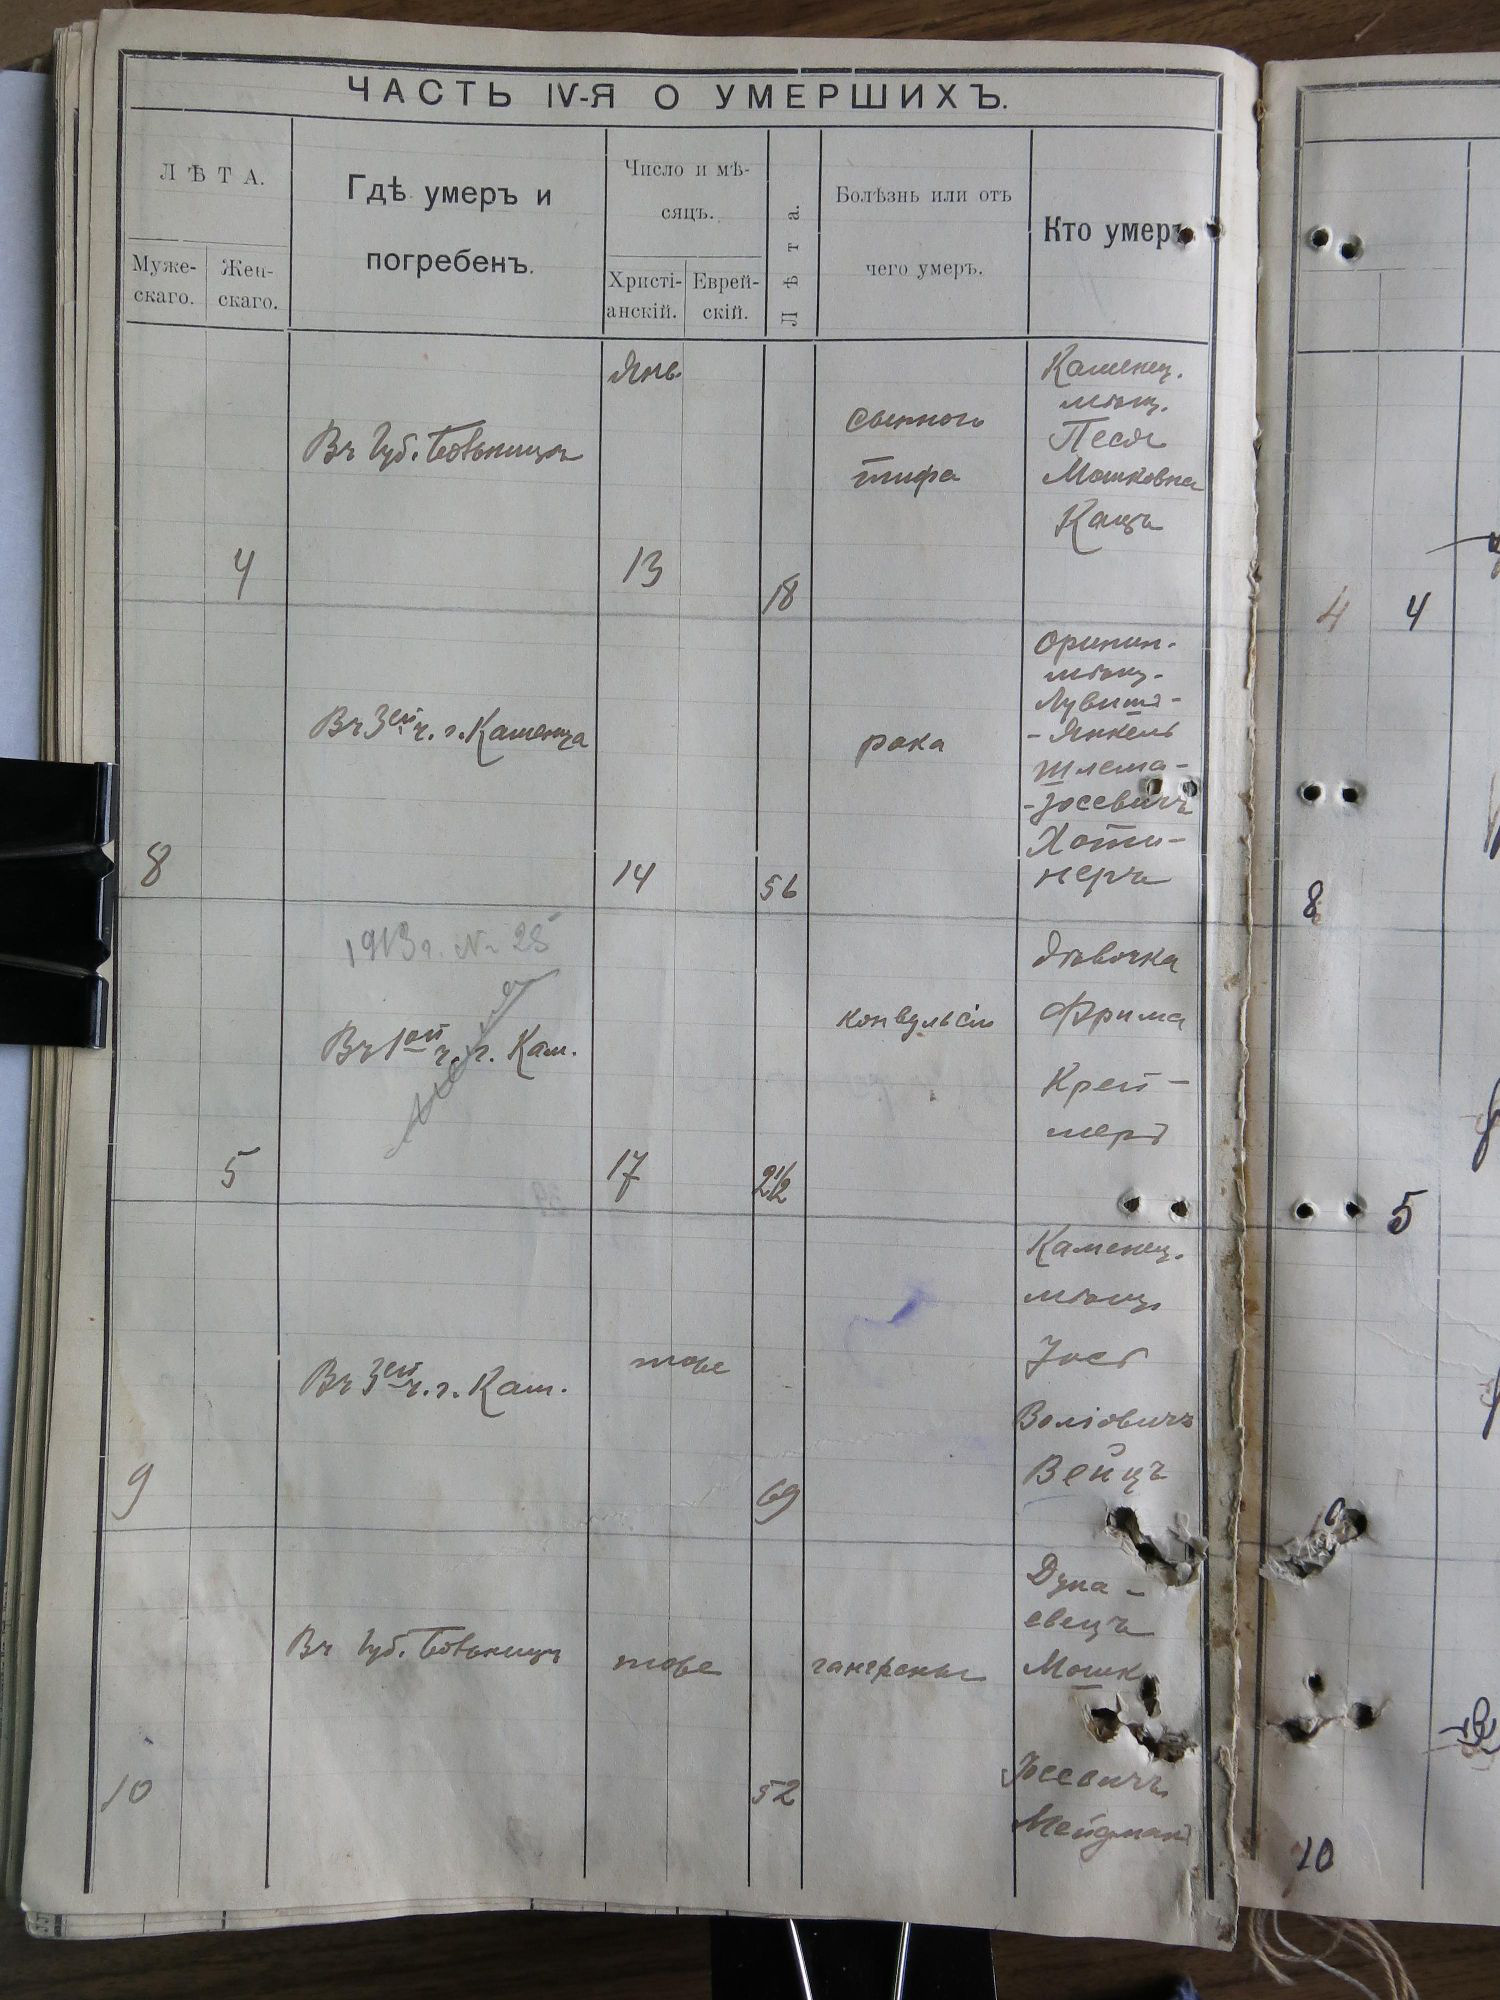 ЧАСТЬ IV-Я О УМЕРШИХЪ.
ЛѢТА.
Муже-
скаго.
Жен-
скаго.
Гдѣ умеръ и
погребенъ.
Число и мѣ-
сяцъ.
Христі-
анскій.
Еврей-
скій.
Лѣта.
Болѣзнь или отъ
чего умеръ.
Кто умеръ
4
Въ Губ. Больницѣ
Янв.
13
18
сыпного
тифа
Каменец.
мѣщ.
Песя
Мошковна
Кацъ
8
Въ 3ей ч. г. Каменца
14
56
рака
Оринин.
мѣщ.
-Янкель
Шлема-
-Іосевичъ
Хоти-
неръ
5
1913 г. № 25
Въ 1ой ч. г. Кам.
17
2 1/2
конвульсіи
дѣвочка
Фрима
Крей-
меръ
9
Въ 3ей ч. г. Кам.
тоже
69
Каменец.
мѣщ.
Іось
Волковичъ
Вейцъ
10
Въ Губ. Больницѣ
тоже
52
гангрены
Дуна-
евецъ
Мошк
Іосевичъ
Мейдманъ
4
4
8
5
10